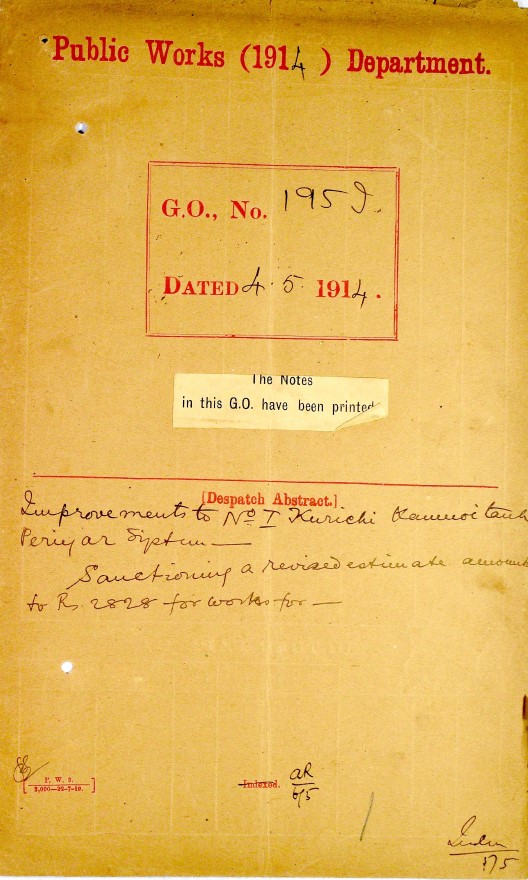 Public Works (1914) Department.
G.O., No. 195 I.
DATED 4.5.1914.
The Notes
in this G.O. have been printed
[Despatch Abstract.]
Improvements to No I Kurichi Kanmoi tank
Periyar System —
Sanctioning a revised estimate amount
to Rs. 2828 for works for —
P. W. 3.
3,000—22-7-10.
Indexed.
6/5
Index
1/5